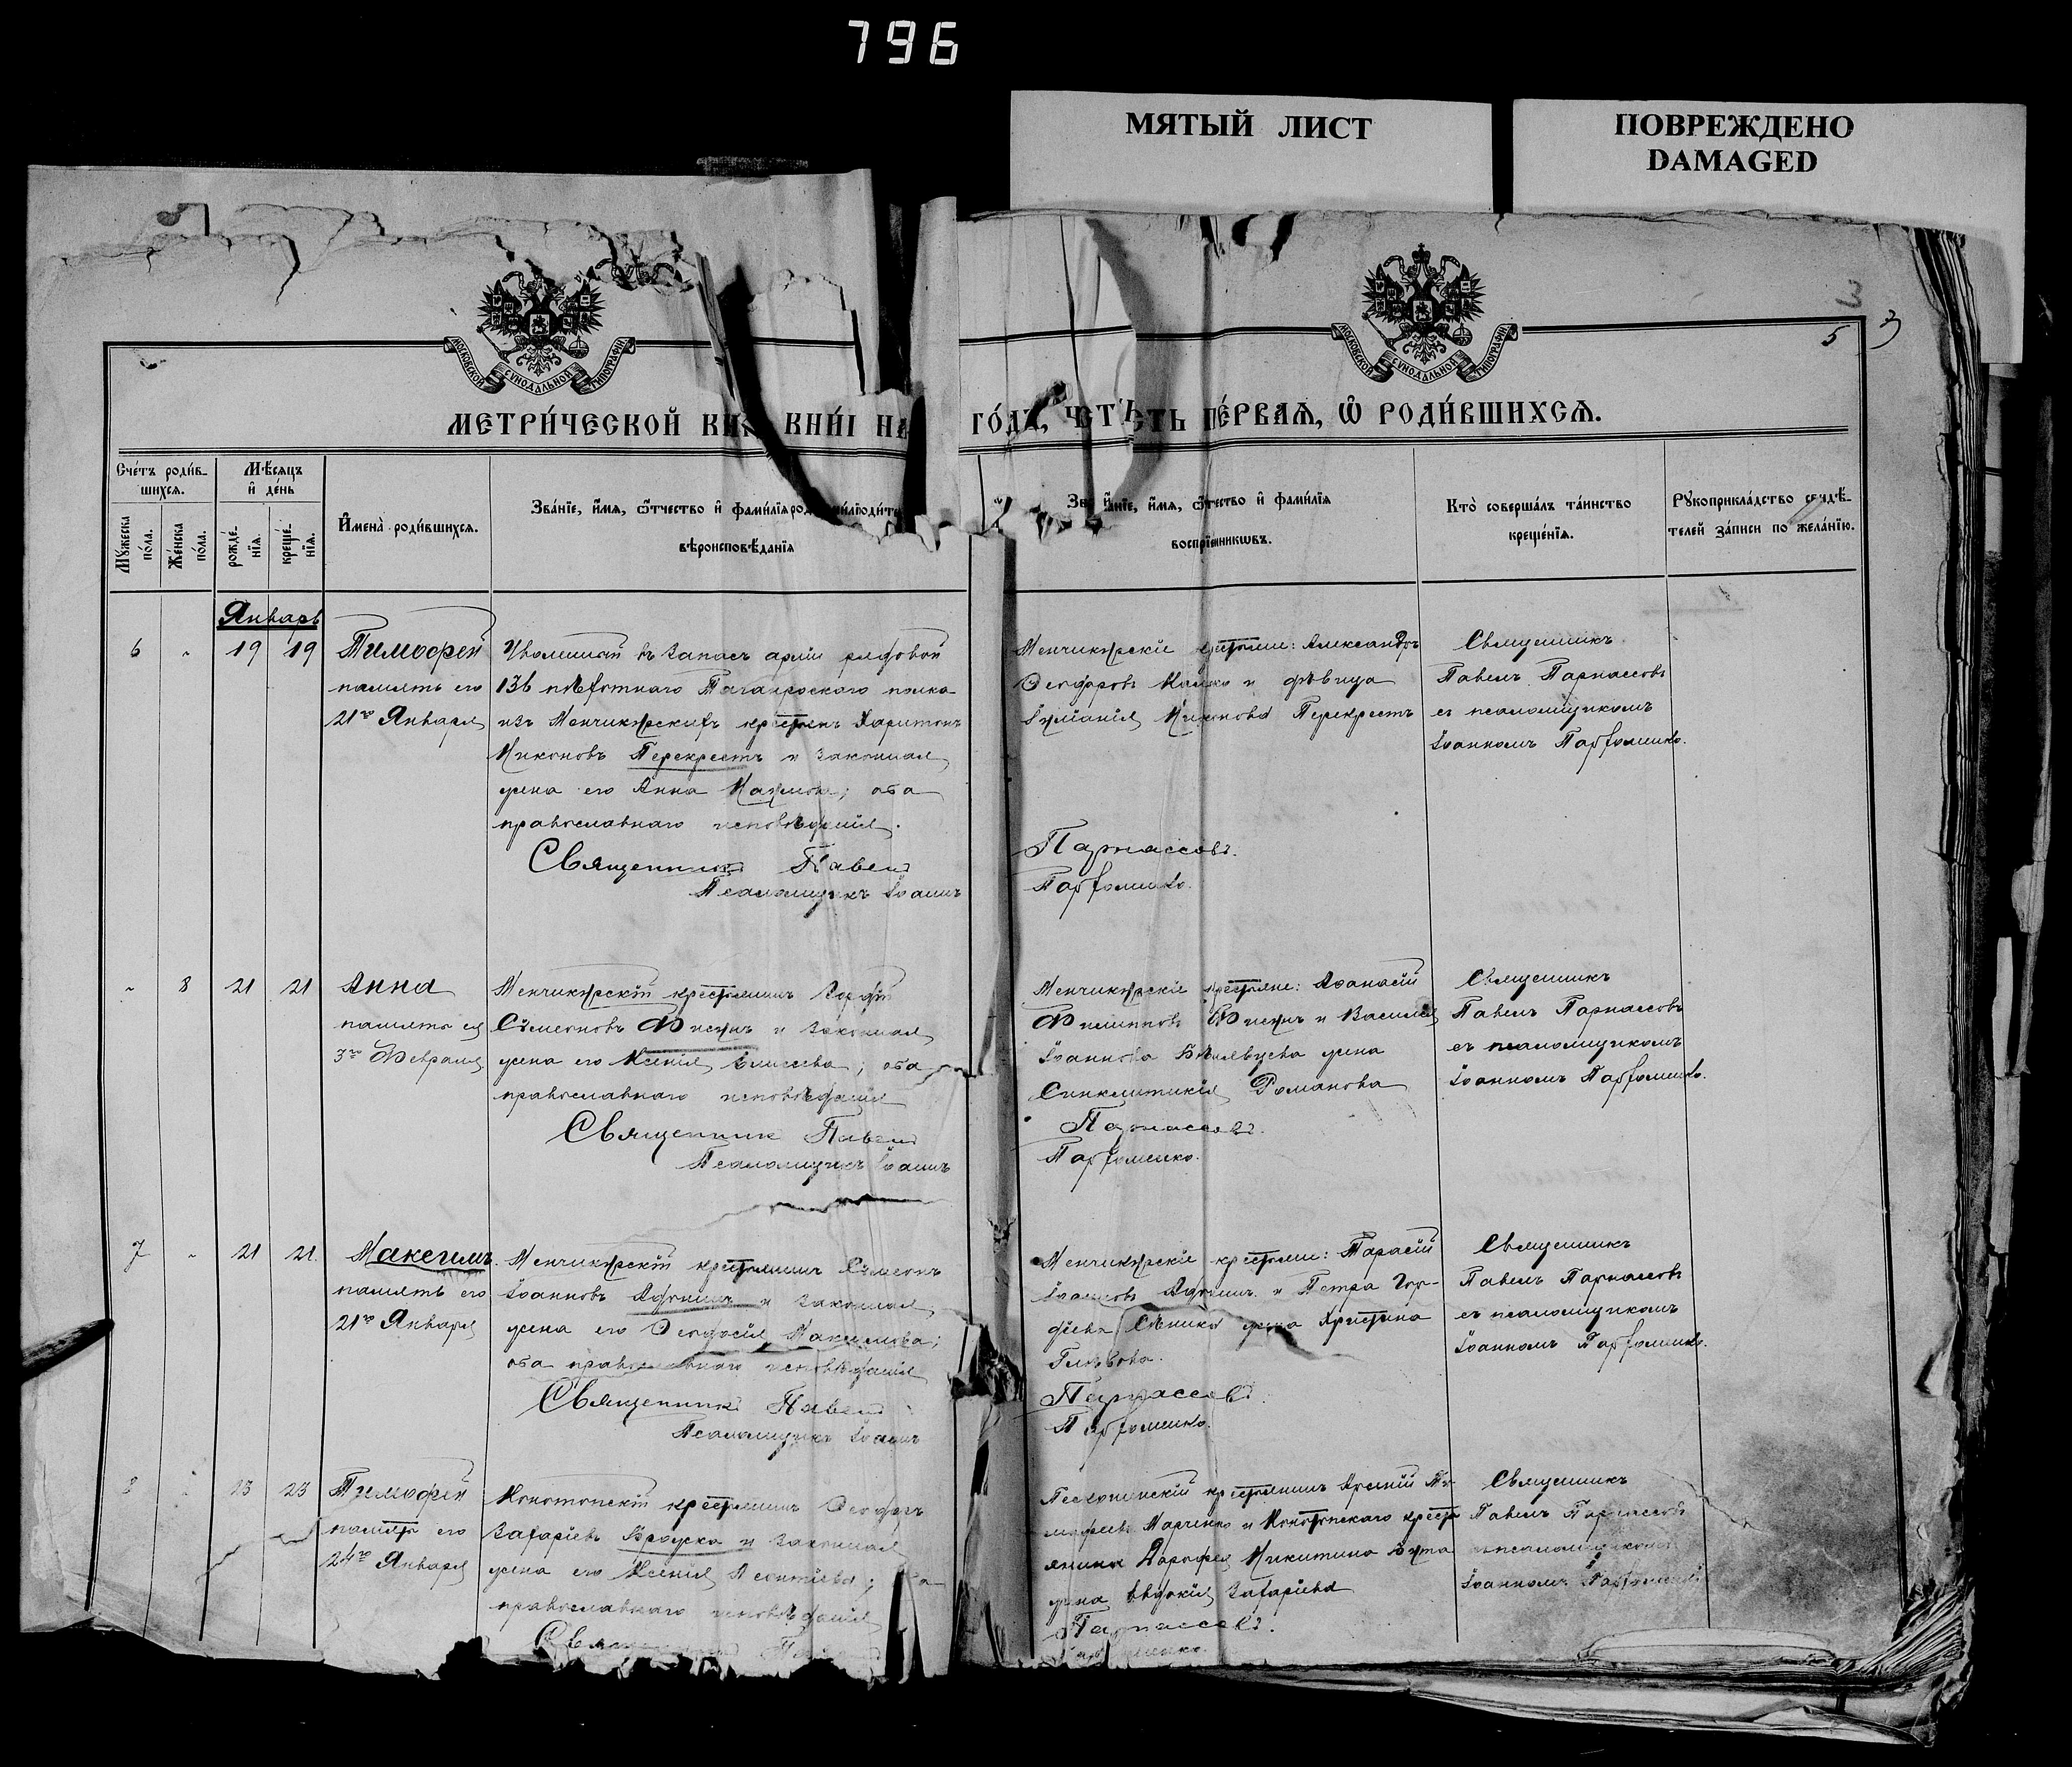 796
МЯТЫЙ ЛИСТ
ПОВРЕЖДЕНО
DAMAGED
МОСКОВСКОЙ СѴНОДАЛЬНОЙ ТИПОГРАФІИ
МОСКОВСКОЙ СѴНОДАЛЬНОЙ ТИПОГРАФІИ
5
МЕТРИ́ЧЕСКОЙ КНИ НА ГО́ДЪ, ЧАСТЬ ПЕ́РВАЯ, Ѿ РОДИ́ВШИХСЯ.
Сче́тъ роди́в-
шихся.
Мѣ́сяцъ
и҆ де́нь
Мꙋ́жеска по́ла.
Же́нска по́ла.
рожде́-нїя.
креще́-нїя.
И҆мена̀ роди́вшихся.
Зва́нїе, и҆́мя, ѻ҆́тчество и҆ фами́лїя
вѣроисповѣ́данїя
Зва́нїе, и҆́мя, ѻ҆́тчество и҆ фами́лїя
воспрїе́мникѡвъ.
Кто̀ соверша́лъ та́инство
креще́нїя.
Рꙋкоприкла́дство свидѣ́-
телей за́писи по жела́нїю.
Январь
6 " 19 19 Тимоѳей
память его
21го Января
Уволенный въ запасъ арміи рядовой
136 пѣхотнаго Таганрогскаго полка
изъ Менчикурскихъ крестьянъ Харитонъ
Никоновъ Перекрестъ и законная
жена его Анна ; оба
православнаго исповѣданія.
Священникъ Павелъ
Псаломщикъ Іоаннъ
Менчикурскіе крестьяне: Александръ
Ѳеодоровъ и дѣвица
Іуліанія Никонова Перекрестъ
Парнассовъ.
Парфоменко.
Священникъ
Павелъ Парнассовъ
съ псаломщикомъ
Іоанномъ Парфоменко.
" 8 21 21 Анна
память ея
3го Февраля
Менчикурскій крестьянинъ Гордій
Сѷмеоновъ и законная
жена его Ксенія Елисеева; оба
православнаго исповѣданія
Священникъ Павелъ
Псаломщикъ Іоаннъ
Менчикурскіе крестьяне: Аѳанасій
Филипповъ и Василія
Іоаннова жена
Синклитикія Романова
Парнассовъ.
Парфоменко.
Священникъ
Павелъ Парнассовъ
съ псаломщикомъ
Іоанномъ Парфоменко.
7 " 21 21 Максимъ
память его
21го Января
Менчикурскій крестьянинъ Сѷмеонъ
Іоанновъ и законная
жена его Ѳеодосія Максимова;
оба православнаго исповѣданія
Священникъ Павелъ
Псаломщикъ Іоаннъ
Менчикурскіе крестьяне: Тарасій
Іоанновъ и Петра Гор-
дѣева жена Христина
Глѣбова.
Парнассовъ.
Парфоменко.
Священникъ
Павелъ Парнассовъ
съ псаломщикомъ
Іоанномъ Парфоменко.
8 " 23 23 Тимоѳей
память его
24го Января
Конотопскій крестьянинъ Ѳеодоръ
Захаріевъ и законная
жена его Ксенія Леонтіева;
православнаго исповѣданія
Священникъ
крестьянинъ Арсеній Ти-
моѳеевъ Марченко и Конотопскаго крестья-
янина Дороѳея Никитина
жена Евдокія Захаріева
Парнассовъ.
Парфоменко.
Священникъ
Павелъ Парнассовъ
съ псаломщикомъ
Іоанномъ Парфоменко